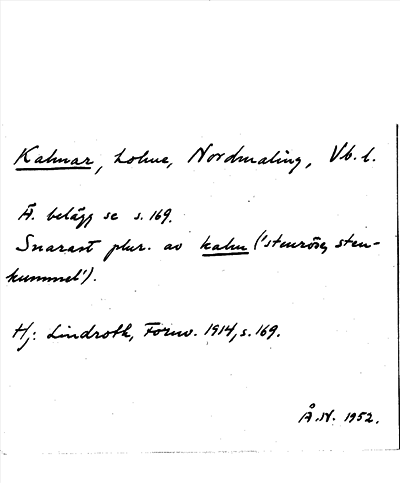 Kalmar, Lohne, Nordmaling, Vb. l.
Ä. belägg se s. 169.
Snarast plur. av kalm ('stenröse, sten-
kummel').
Hj: Lindroth, Fornv. 1914, s. 169.
Å. N. 1952.